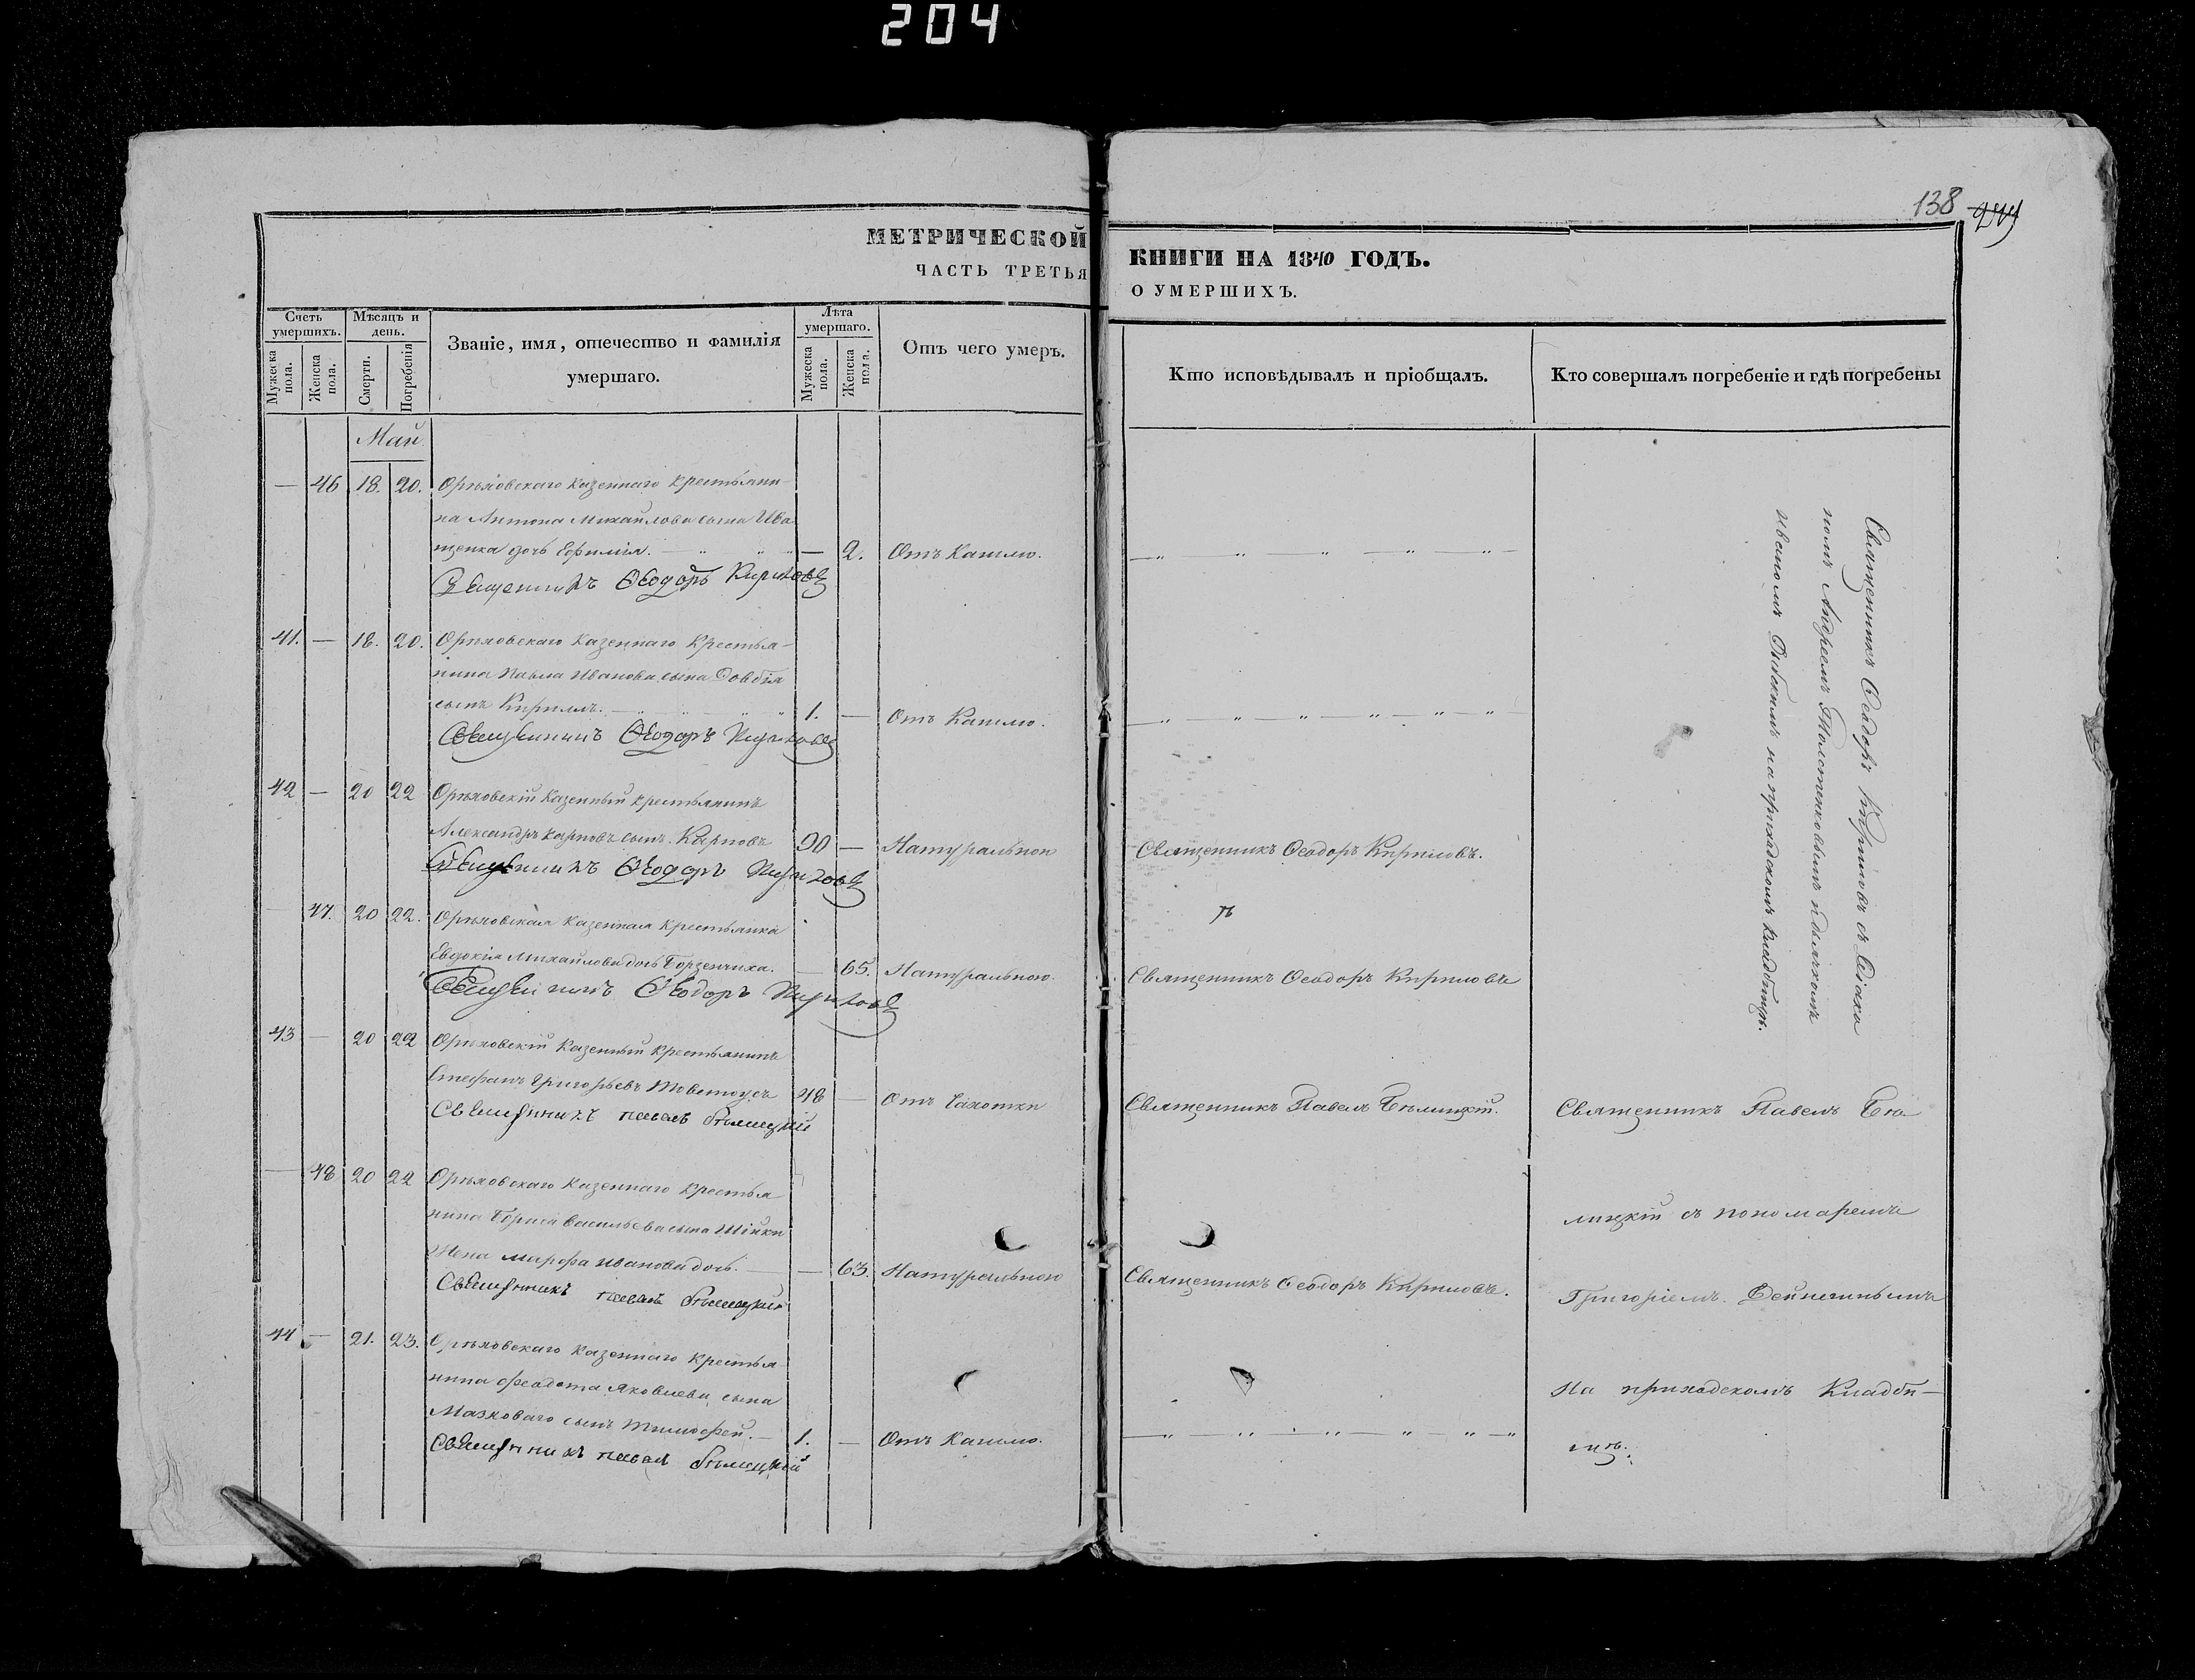 204
138 249
МЕТРИЧЕСКОЙ КНИГИ НА 1840 ГОДЪ.
ЧАСТЬ ТРЕТЬЯ О УМЕРШИХЪ.
Счетъ умершихъ.
Мужеска пола.
Женска пола.
Мѣсяцъ и день.
Смерти.
Погребенія
Званіе, имя, отечество и фамилія
умершаго.
Лѣта умершаго.
Мужеска пола.
Женска пола.
Отъ чего умеръ.
Кто исповѣдывалъ и пріобщалъ.
Кто совершалъ погребеніе и гдѣ погребены
Май
— 46 18. 20. Орѣховскаго казеннаго крестьяни-
на Антона Михайлова сына Ива
щенка дочь Ефимія. — 2. Отъ Кашлю.
Священникъ Ѳеодоръ Кириловъ
41. — 18. 20. Орѣховскаго Казеннаго Крестья-
нина Павла Иванова сына Довбія
сынъ Кириллъ. 1. — Отъ Кашлю.
Священникъ Ѳеодоръ Кириловъ
42 — 20 22 Орѣховскій Казенный крестьянинъ
Александръ Карповъ сынъ Карповъ 90 — Натуральною Священникъ Ѳеодоръ Кириловъ.
Священникъ Ѳеодоръ Кириловъ
— 47. 20 22. Орѣховская казенная крестьянка
Евдокія Михайлова дочь Борзенчиха. — 65. Натуральною Священникъ Ѳеодоръ Кириловъ
Священникъ Ѳеодоръ Кириловъ
43 — 20 22 Орѣховскій Казенный крестьянинъ
Стефанъ Григорьевъ Товстоусъ 48 — Отъ Чахотки Священникъ Павелъ Бѣлицкій.
Священникъ Павелъ Бѣлицкій
— 48 20 22 Орѣховскаго Казеннаго Крестья
нина Бориса Васильева сына Шійки
Жена Марфа Иванова дочь. — 63. Натуральною Священникъ Ѳеодоръ Кириловъ.
Священникъ Павелъ Бѣлицкій
44 — 21. 23. Орѣховскаго Казеннаго Крестья
нина Феодота Яковлева сына
Мазковаго сынъ Тимофей. — 1. — Отъ Кашлю.
Священникъ Павелъ Бѣлицкій
Священникъ Ѳеодоръ Кириловъ съ Діако
номъ Андреемъ и дьячкомъ
Иваномъ на приходскомъ кладбищѣ.
Священникъ Павелъ Бѣ
лицкій съ пономаремъ
Григоріемъ Дейнечинымъ
На приходскомъ Кладби-
щѣ.